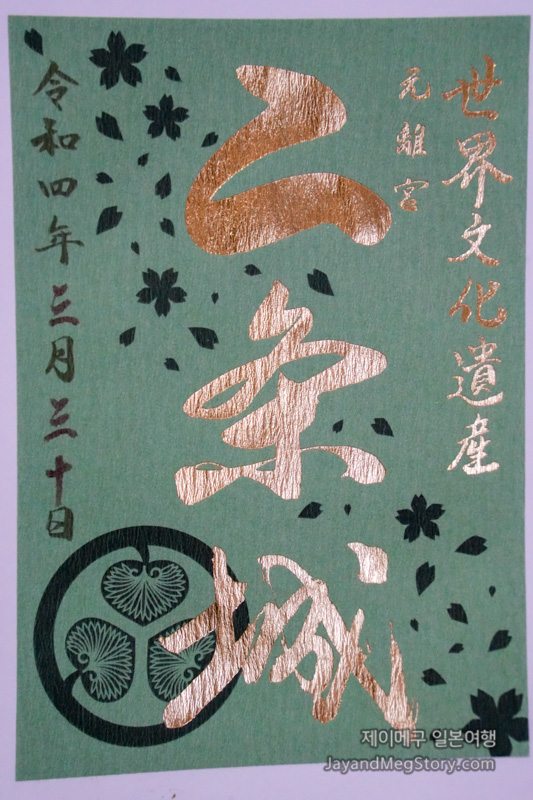 世界文化遺産
元離宮
二条城
令和四年三月三十日
제이메구 일본여행
JayandMegStory.com